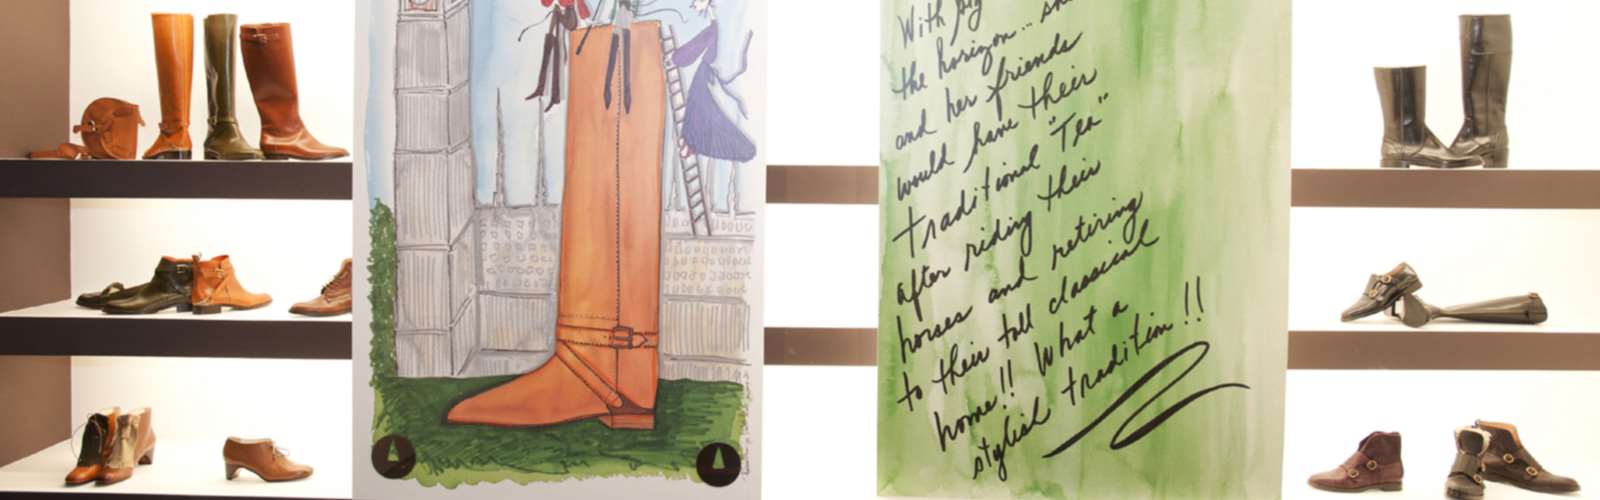 With big
the horizon... she
and her friends
would have their
traditional "Tea"
after riding their
horses and retiring
to their tall classical
home!! What a
stylish tradition!!